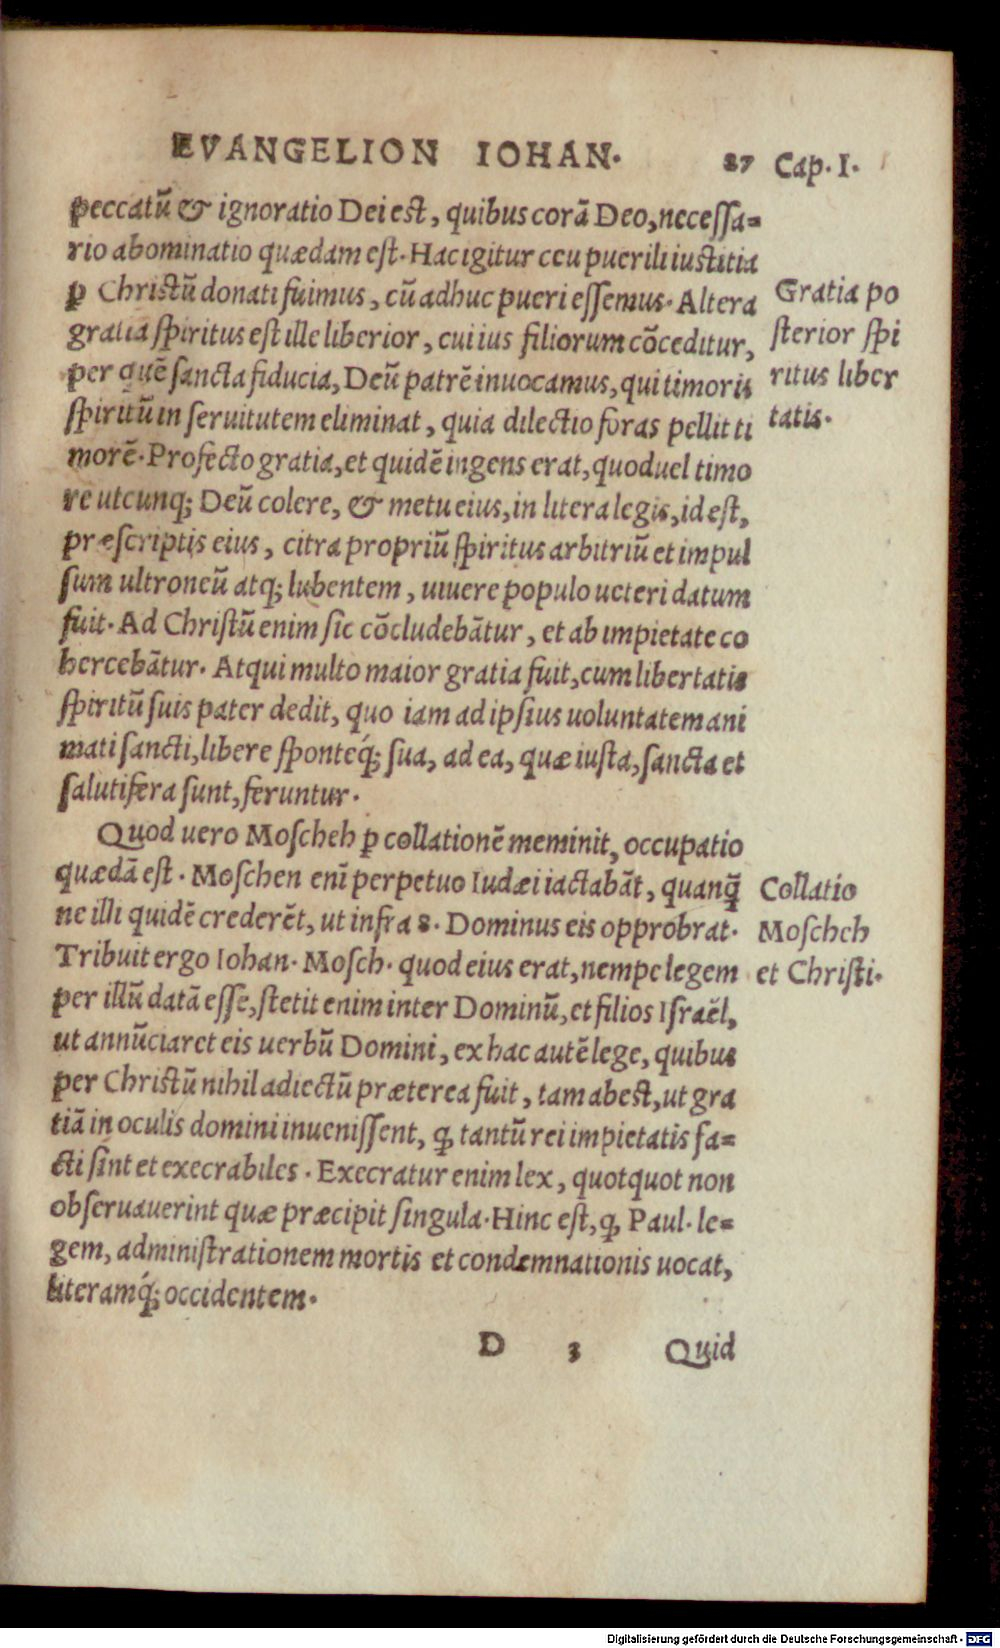 EVANGELION IOHAN. 27 Cap. I.
peccatū & ignoratio Dei est, quibus corā Deo, necessa=
rio abominatio quædam est. Hac igitur ceu puerili iustitia
ꝑ Christū donati fuimus, cū adhuc pueri essemus. Altera
gratia spiritus est ille liberior, cui ius filiorum cōceditur,
per quē sancta fiducia, Deū patrē inuocamus, qui timoris
spiritū in seruitutem eliminat, quia dilectio foras pellit ti
morē. Profecto gratia, et quidē ingens erat, quod uel timo
re utcunq; Deū colere, & metu eius, in litera legis, id est,
præscriptis eius, citra propriū spiritus arbitriū et impul
sum ultroneū atq; lubentem, uiuere populo ueteri datum
fuit. Ad Christū enim sic cōcludebātur, et ab impietate co
hercebātur. Atqui multo maior gratia fuit, cum libertatis
spiritū suis pater dedit, quo iam ad ipsius uoluntatem ani
mati sancti, libere sponteq́; sua, ad ea, quæ iusta, sancta et
salutifera sunt, feruntur.
Gratia po
sterior spi
ritus liber
tatis.
Quod uero Moscheh ꝑ collationē meminit, occupatio
quædā est. Moschen enī perpetuo Iudæi iactabāt, quanq̄
ne illi quidē crederēt, ut infra 8. Dominus eis opprobrat.
Tribuit ergo Iohan. Mosch. quod eius erat, nempe legem
per illū datā esse, stetit enim inter Dominū, et filios Israēl,
ut annūciaret eis uerbū Domini, ex hac autē lege, quibus
per Christū nihil adiectū præterea fuit, tam abest, ut gra
tiā in oculis domini inuenissent, ꝙ tantū rei impietatis fa=
cti sint et execrabiles. Execratur enim lex, quotquot non
obseruauerint quæ præcipit singula. Hinc est, ꝙ Paul. le=
gem, administrationem mortis et condemnationis uocat,
literamq́; occidentem.
Collatio
Moscheh
et Christi.
D 3 Quid
Digitalisierung gefördert durch die Deutsche Forschungsgemeinschaft - DFG